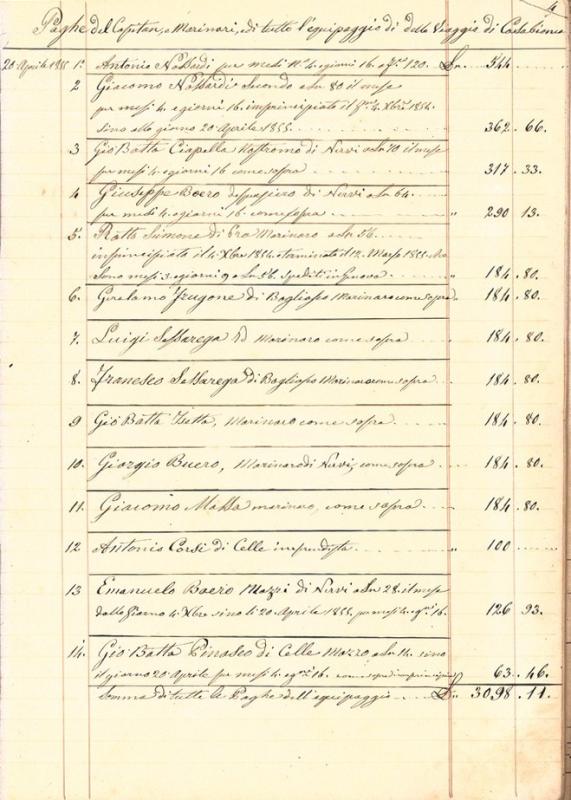 4
Paghe del Capitan, e Marinari, e di tutto l'equipaggio di detto Viaggio di Casabianca
20 Aprile 1855 1º Antonio per mesi Nº 4 e giorni 16 a 120. Ln. 544
2 Giacomo Secondo a Ln 80 il mese
per mesi 4 e giorni 16 imprincipiato il 4 Xbre 1854
sino allo giorno 20 Aprile 1855 362. 66.
3 Gio Batta Ciapella Nostromo di Nervi a Ln 70 il mese
per mesi 4 e giorni 16 come sopra 317. 33.
4 Giuseppe Boero di Nervi a Ln 64.
per mesi 4. e giorni 16. come sopra " 290 13.
5. Ratto Simone di Pra Marinaro a Ln 56.
imprincipiato il 4 Xbre 1854 e terminato il 12 Marzo 1855
sono mesi 3. giorni 9 a Ln 56. spediti in Genova " 184. 80.
6. Gerolamo Frugone di Bogliasco Marinaro come sopra 184. 80.
7. Luigi Sessarega Marinaro come sopra 184. 80.
8. Francesco Sessarega di Bogliasco Marinaro come sopra 184. 80.
9 Gio Batta Marinaro come sopra 184. 80.
10. Giorgio Buero, Marinaro di Nervi, come sopra 184. 80.
11. Giacomo Massa marinaro, come sopra 184. 80.
12 Antonio Corsi di Celle " 100
13 Emanuelo Boero Mozzi di Nervi a Ln 28. il mese
dallo Giorno 4 Xbre sino li 20 Aprile 1855 per mesi 4. e gni 16. 126 93.
14. Gio Batta Pinasco di Celle Mozzo a Ln 14. sino
il giorno 20 Aprile per mesi 4 e gni 16. come sopra 63. 46.
Somma di tutte le Paghe dell'equipaggio Ln. 3098. 11.